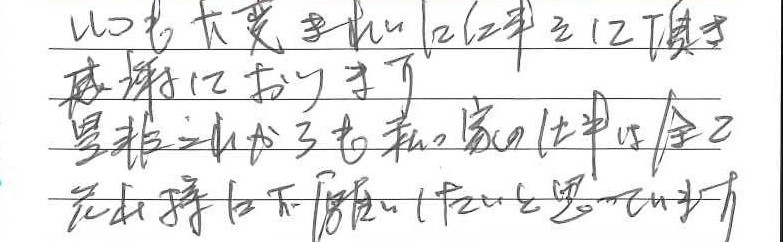 いつも大変きれいに仕事をして頂き
感謝しております
是非これからも私の家の仕事は全て
花は様にお願いしたいと思っています